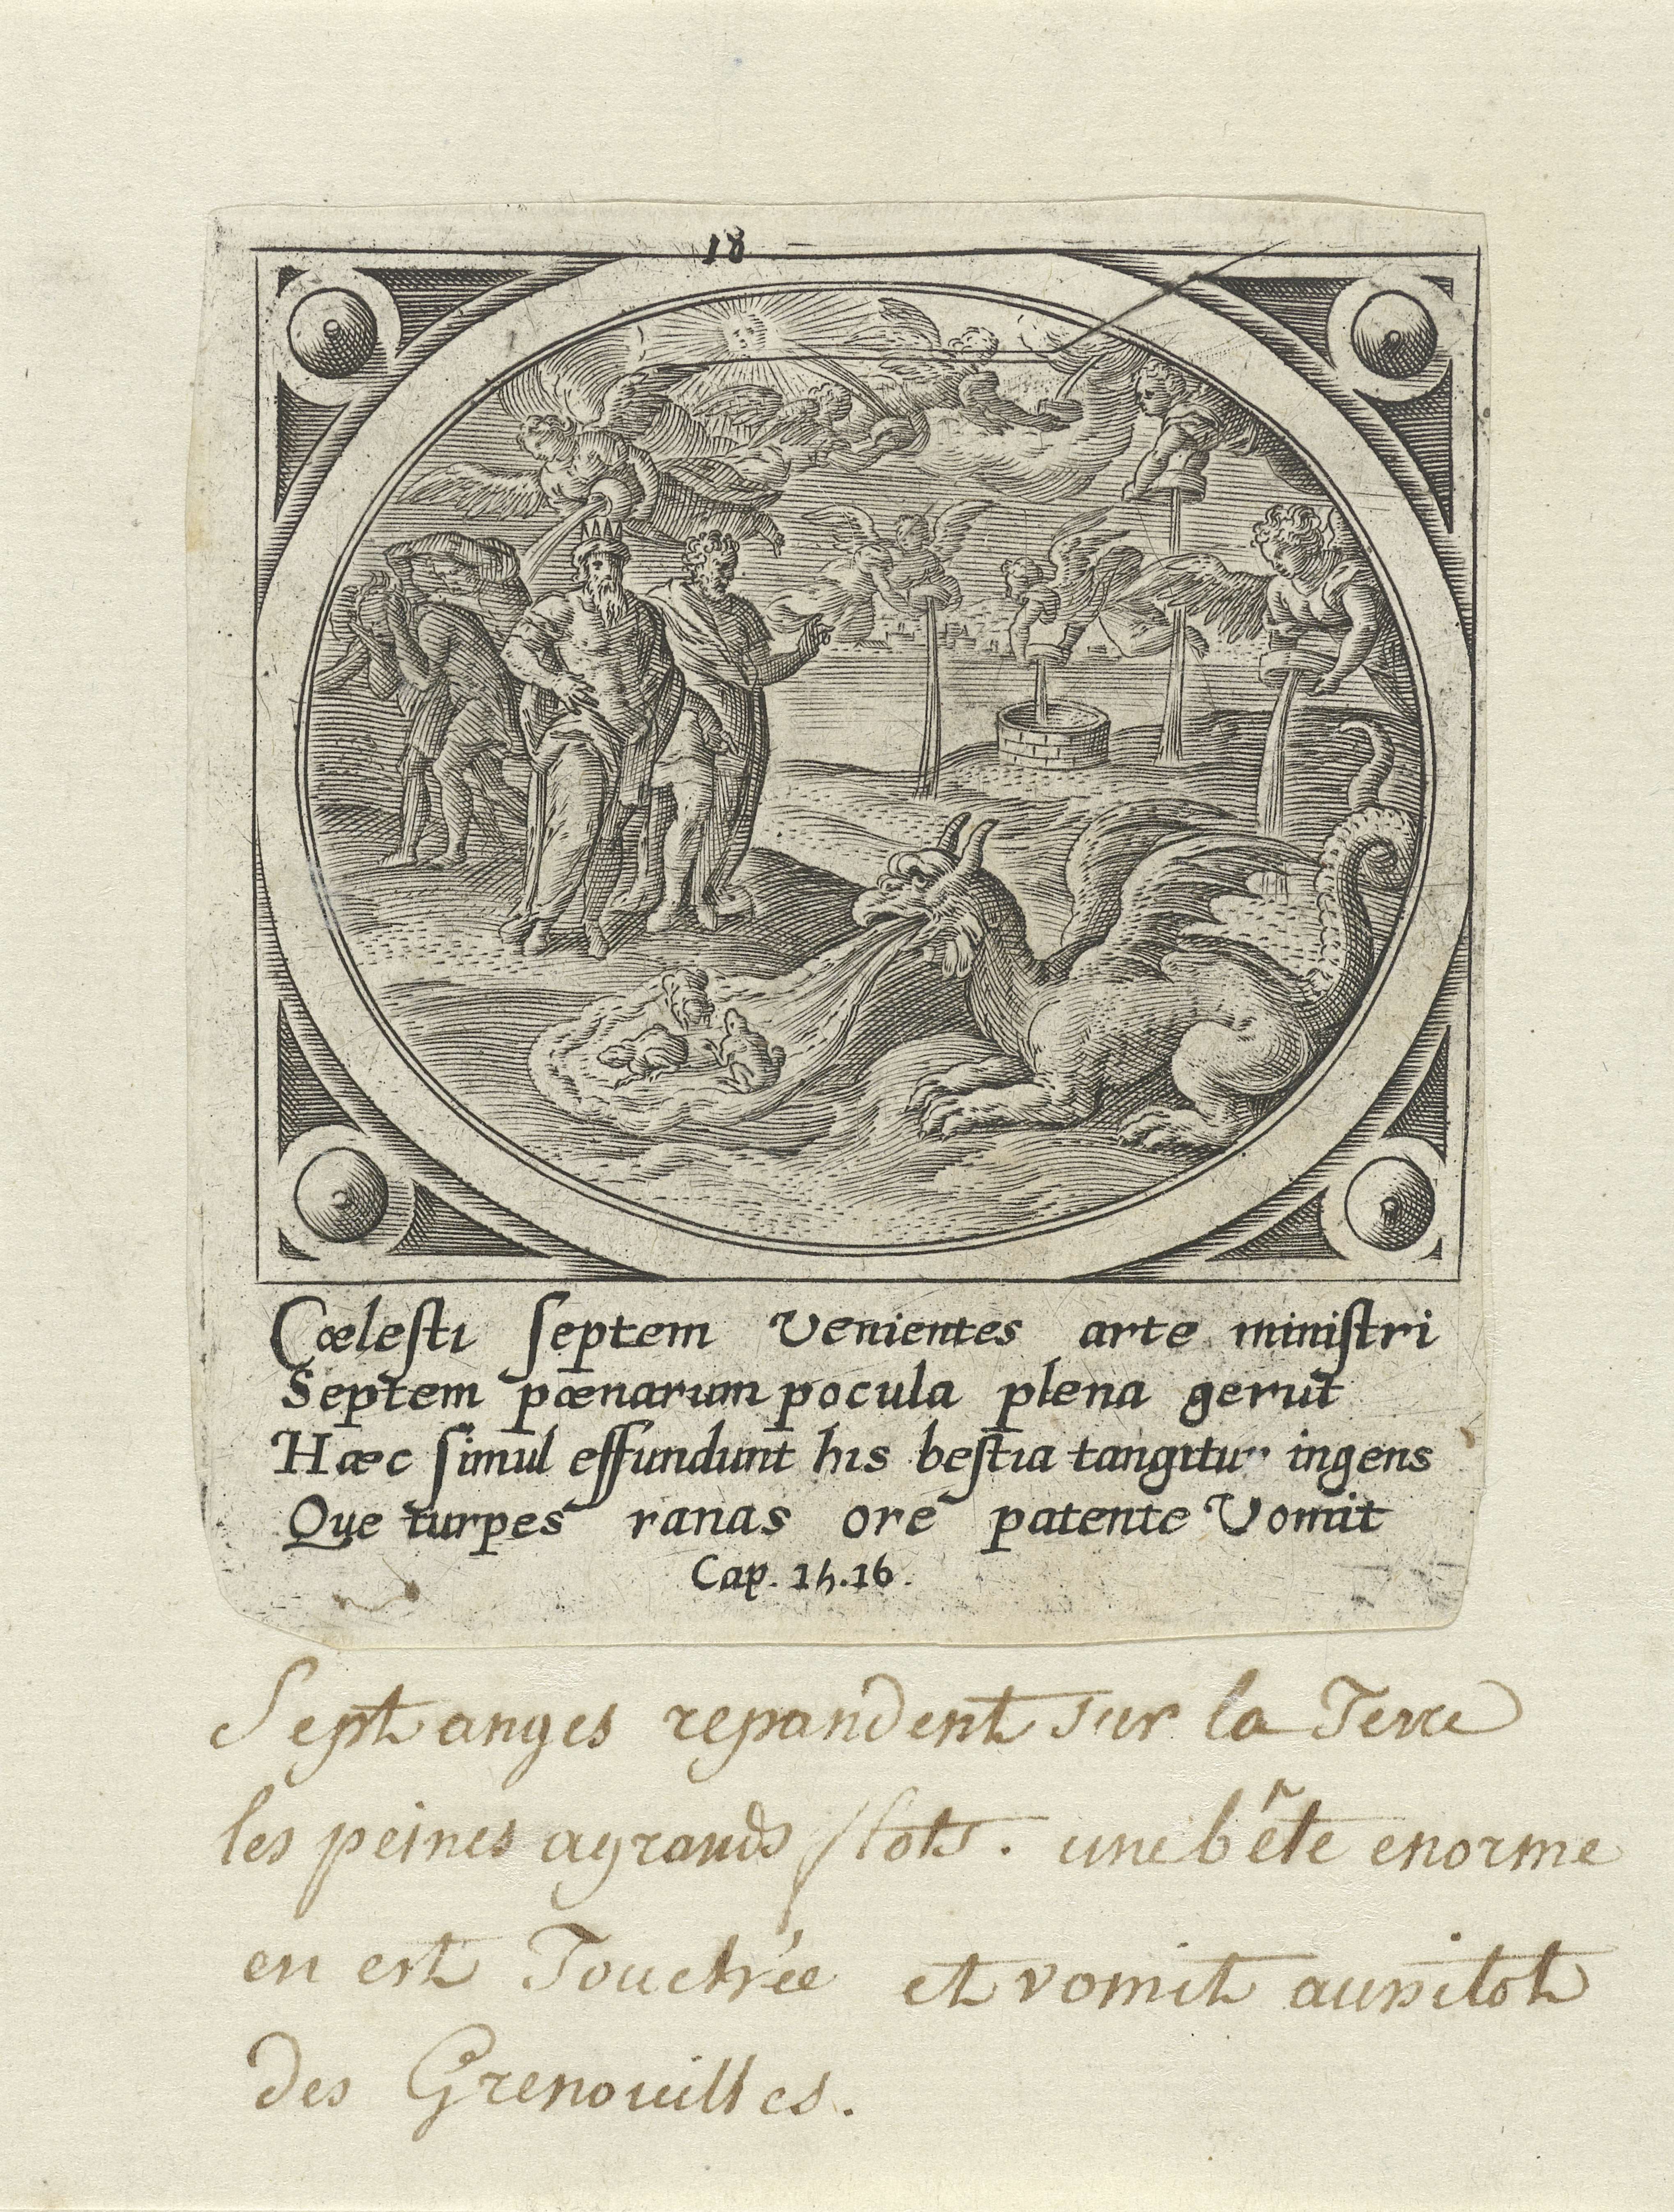 18
Cœleſti ſeptem Venientes arte miniſtri
Septem pœnarum pocula plena gerūt
Hæc ſimul effundunt his beſtia tangitur ingens
Que turpes ranas ore patente Vomit
Cap. 15.16.
Sept anges repandent sur la Terre
les peines a grands flots. une bête enorme
en est Touchée et vomit aussitot
des Grenouilles.